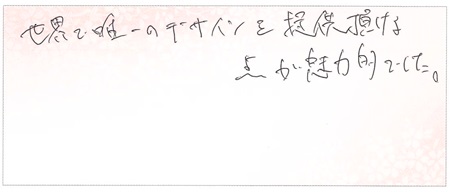 世界で唯一のデザインを提供頂ける
点が魅力的でした。